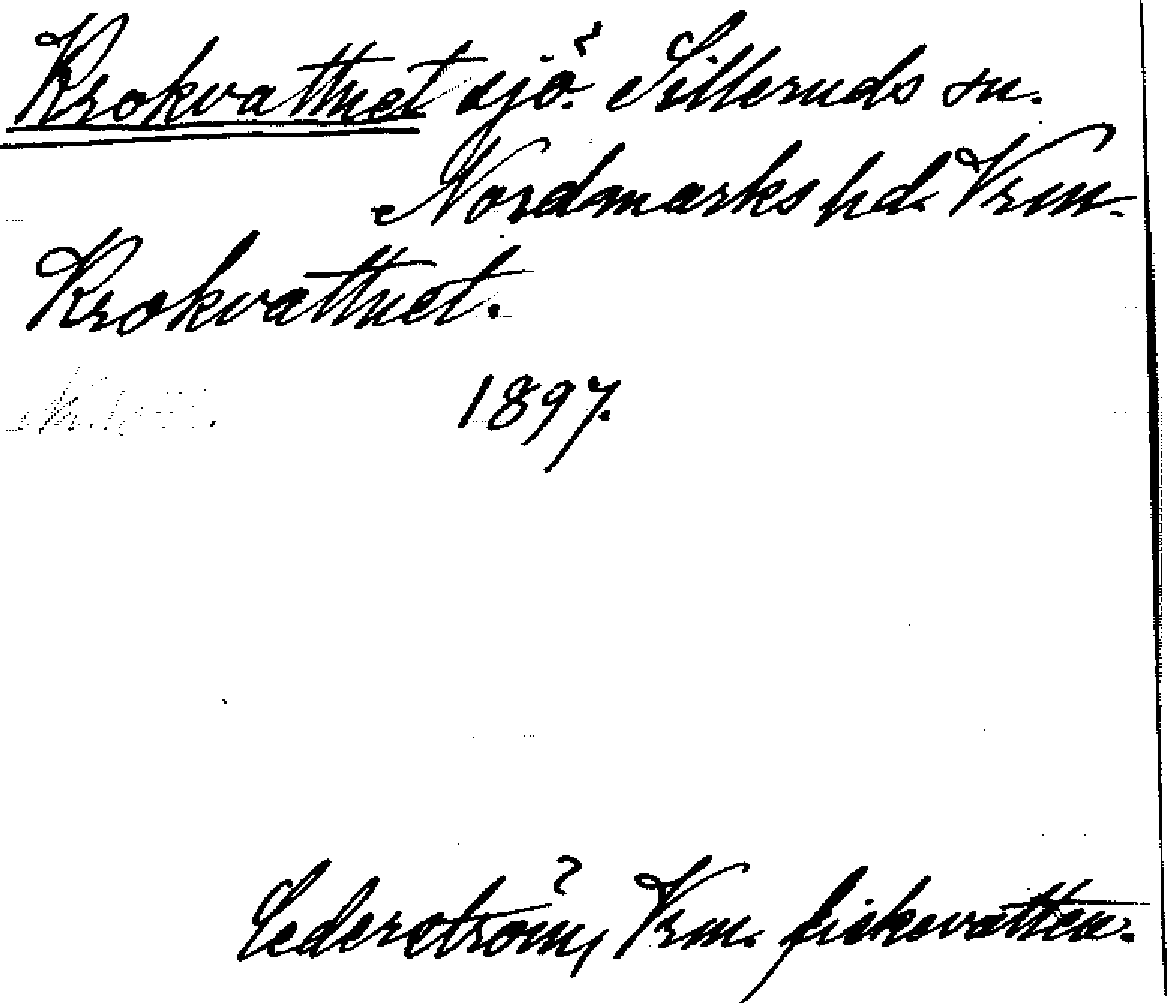 Krokvattnet sjö. Silleruds sn.
Nordmarks hd. Vrm.
Krokvattnet.
1897.
Cederström, Vrm. fiskevatten.